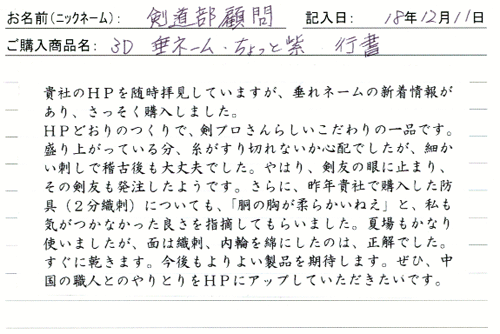 お名前(ニックネーム): 剣道部顧問 記入日: 18年12月11日
ご購入商品名: 3D 垂ネーム・ちょっと紫 行書
貴社のHPを随時拝見していますが、垂れネームの新着情報が
あり、さっそく購入しました。
HPどおりのつくりで、剣プロさんらしいこだわりの一品です。
盛り上がっている分、糸がすり切れないか心配でしたが、細か
い刺しで稽古後も大丈夫でした。やはり、剣友の眼に止まり、
その剣友も発注したようです。さらに、昨年貴社で購入した防
具(2分織刺)についても、「胴の胸が柔らかいねえ」と、私も
気がつかなかった良さを指摘してもらいました。夏場もかなり
使いましたが、面は織刺、内輪を綿にしたのは、正解でした。
すぐに乾きます。今後もよりよい製品を期待します。ぜひ、中
国の職人とのやりとりをHPにアップしていただきたいです。